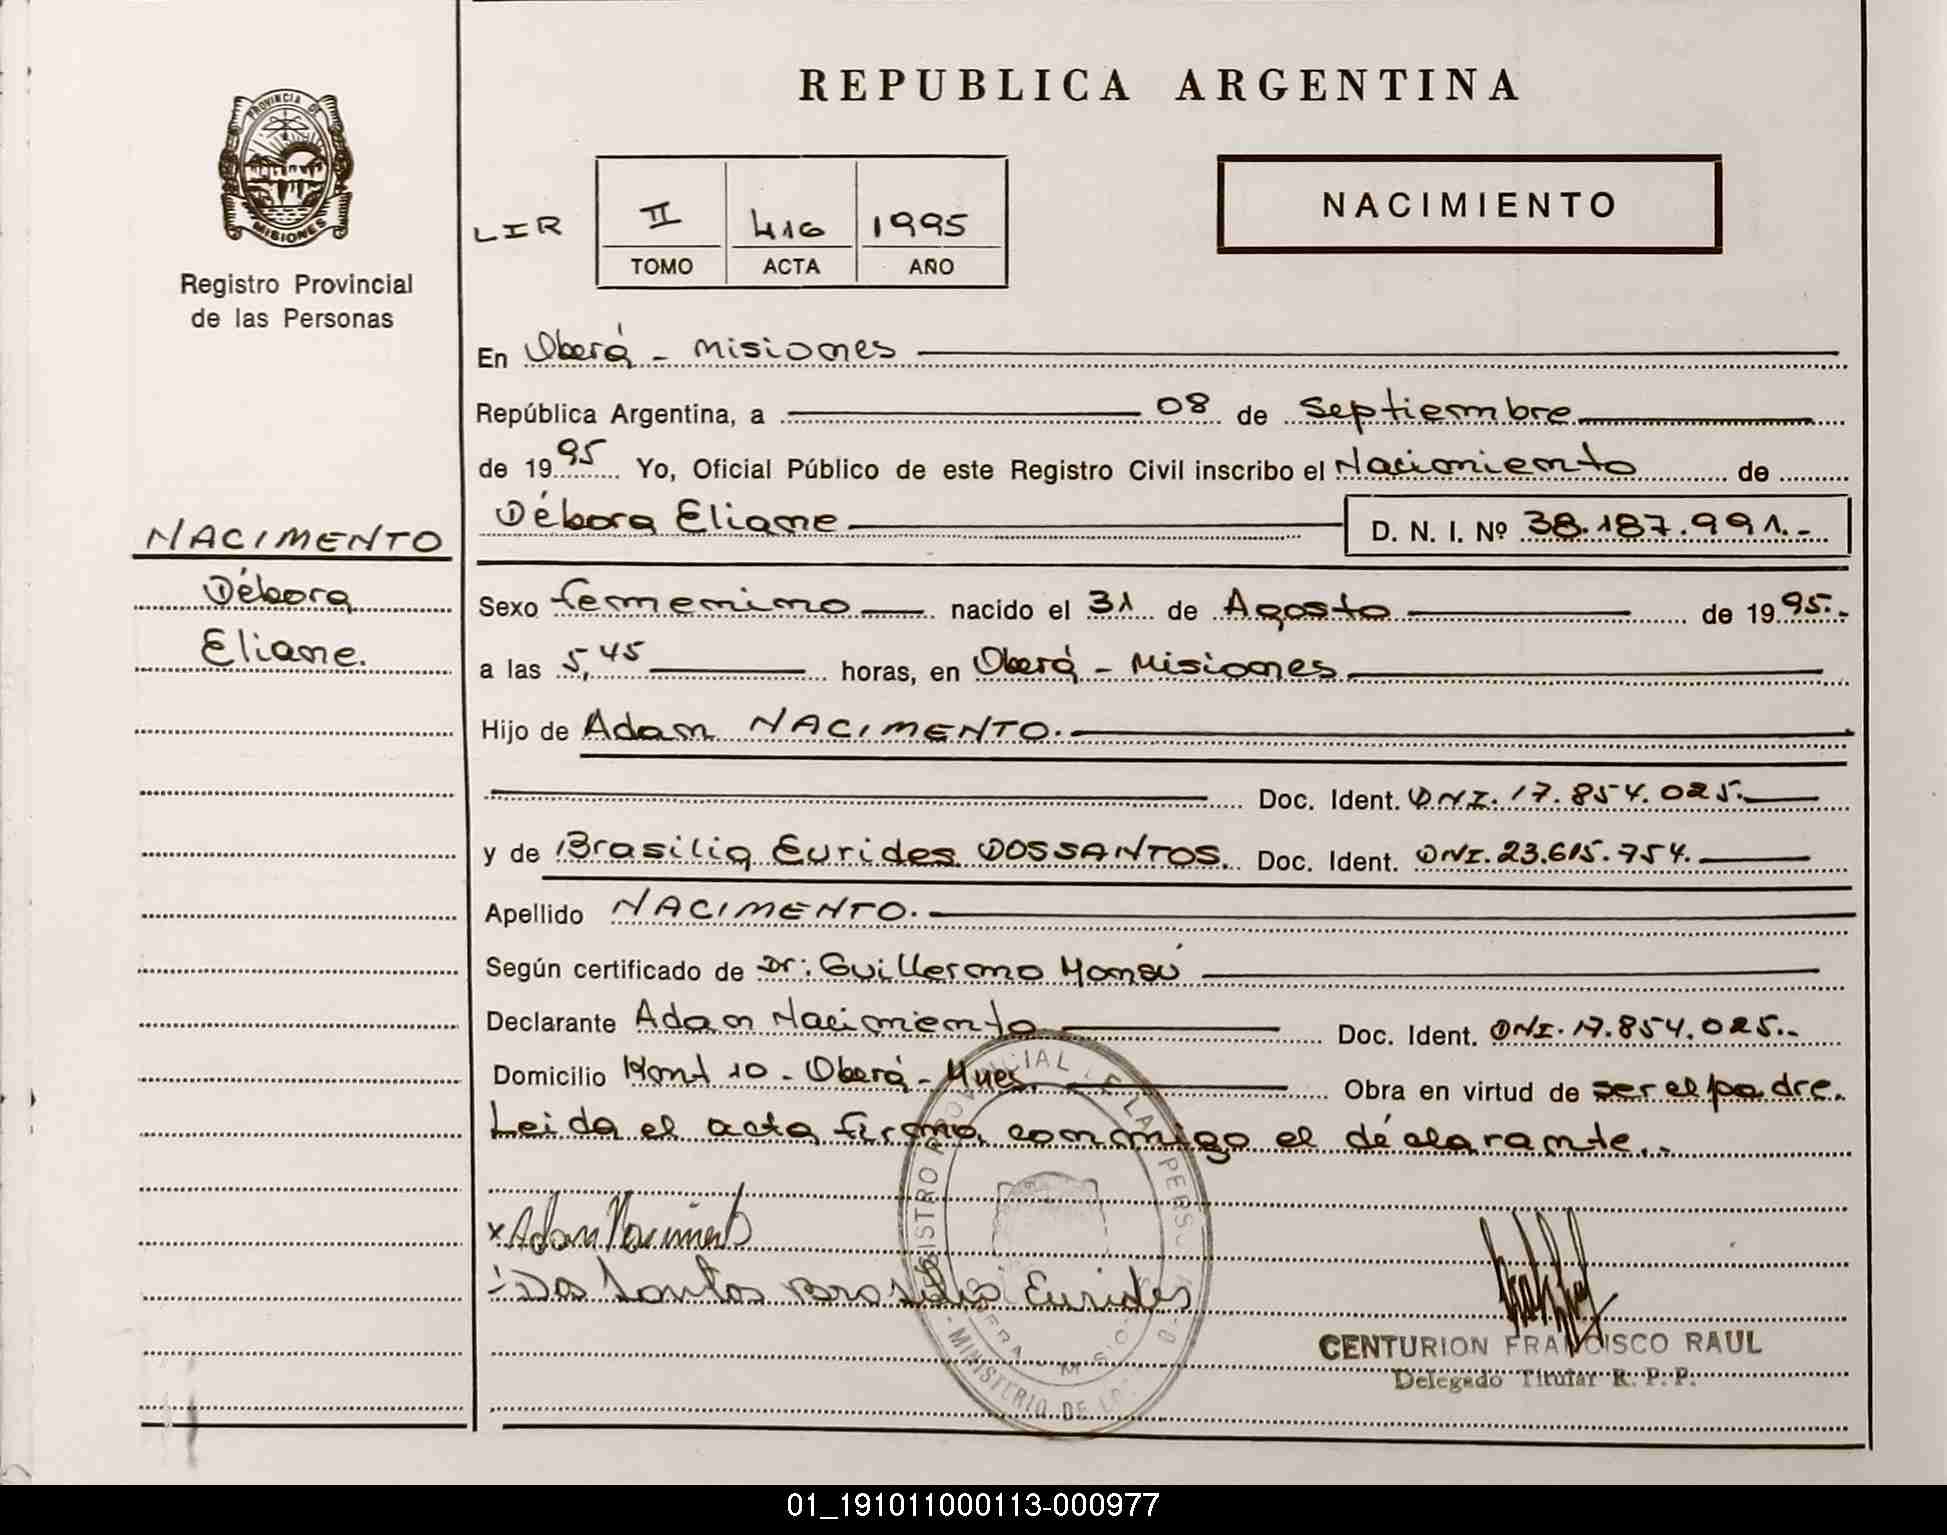 PROVINCIA DE
MISIONES
Registro Provincial
de las Personas
NACIMENTO
Débora
Eliane.
REPUBLICA ARGENTINA
LIR II 416 1995
TOMO ACTA AÑO
NACIMIENTO
En Oberá - Misiones
República Argentina, a 08 de Septiembre
de 1995 Yo, Oficial Público de este Registro Civil inscribo el Nacimiento de
Débora Eliane D. N. I. Nº 38.187.991.-
Sexo femenino nacido el 31 de Agosto de 1995.-
a las 5,45 horas, en Oberá - Misiones
Hijo de Adam NACIMENTO.
Doc. Ident. DNI. 17.854.025.
y de Brasilia Eurides DOSSANTOS. Doc. Ident. DNI. 23.615.754.
Apellido NACIMENTO.
Según certificado de Dr: Guillermo
Declarante Adam Nacimiento Doc. Ident. DNI. 17.854.025.-
Domicilio 10 - Oberá - Mnes. Obra en virtud de ser el padre.
Leida el acta firma conmigo el declarante.-
x Adam Naciment
Dos Santos Brasilia Eurides
CENTURION FRANCISCO RAUL
Delegado Titular R. P. P.
01_191011000113-000977